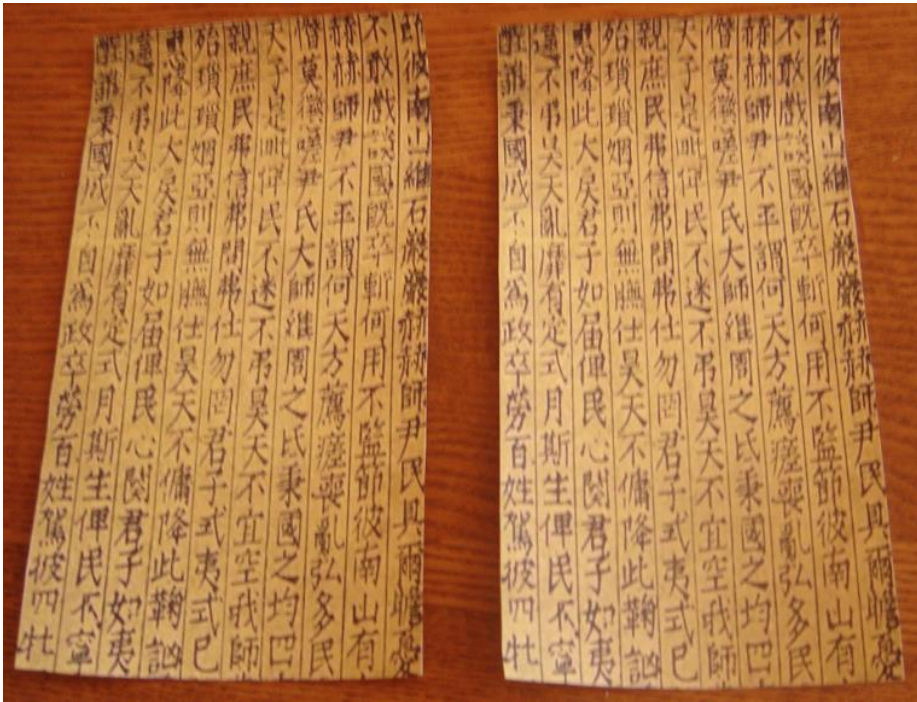 節彼南山維石巖巖赫赫師尹民具爾瞻憂
不敢戲談國既卒斬何用不監節彼南山有
赫赫師尹不平謂何天方薦瘥喪亂弘多民
憯莫懲嗟尹氏大師維周之氐秉國之均四
天子是毗俾民不迷不弔昊天不宜空我師
親庶民弗信弗問弗仕勿罔君子式夷式已
殆瑣瑣姻亞則無膴仕昊天不傭降此鞠訩
惠降此大戾君子如屆俾民心闋君子如夷
違不弔昊天亂靡有定式月斯生俾民不寧
酲誰秉國成不自為政卒勞百姓駕彼四牡
節彼南山維石巖巖赫赫師尹民具爾瞻憂
不敢戲談國既卒斬何用不監節彼南山有
赫赫師尹不平謂何天方薦瘥喪亂弘多民
憯莫懲嗟尹氏大師維周之氐秉國之均四
天子是毗俾民不迷不弔昊天不宜空我師
親庶民弗信弗問弗仕勿罔君子式夷式已
殆瑣瑣姻亞則無膴仕昊天不傭降此鞠訩
惠降此大戾君子如屆俾民心闋君子如夷
違不弔昊天亂靡有定式月斯生俾民不寧
酲誰秉國成不自為政卒勞百姓駕彼四牡